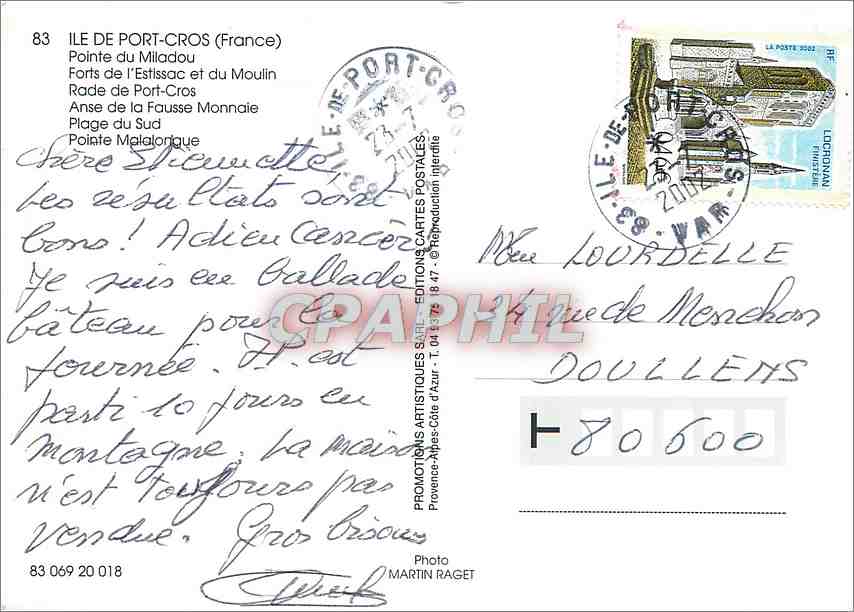 83 ILE DE PORT-CROS (France)
Pointe du Miladou
Forts de l'Estissac et du Moulin
Rade de Port-Cros
Anse de la Fausse Monnaie
Plage du Sud
Pointe Malalongue
Chère Étiennette,
Les résultats sont
bons! Adieu Cancer.
Je suis en ballade
bâteau pour la
journée. J.P. est
parti 10 jours en
montagne. La maison
n'est toujours pas
vendue. Gros bisous
83 069 20 018
Photo
MARTIN RAGET
PROMOTIONS ARTISTIQUES SARL - EDITIONS CARTES POSTALES
Provence-Alpes-Côte d'Azur - T. 04 93 75 18 47 - © Reproduction interdite
83 - ILE - DE - PORT-CROS
23-7
2002
LA POSTE 2002
RF
LOCRONAN
FINISTÈRE
83 - ILE - DE - PORT-CROS - VAR
2002
Mme LOURDELLE
24 rue de Menchon
DOULLENS
80600
CPAPHIL